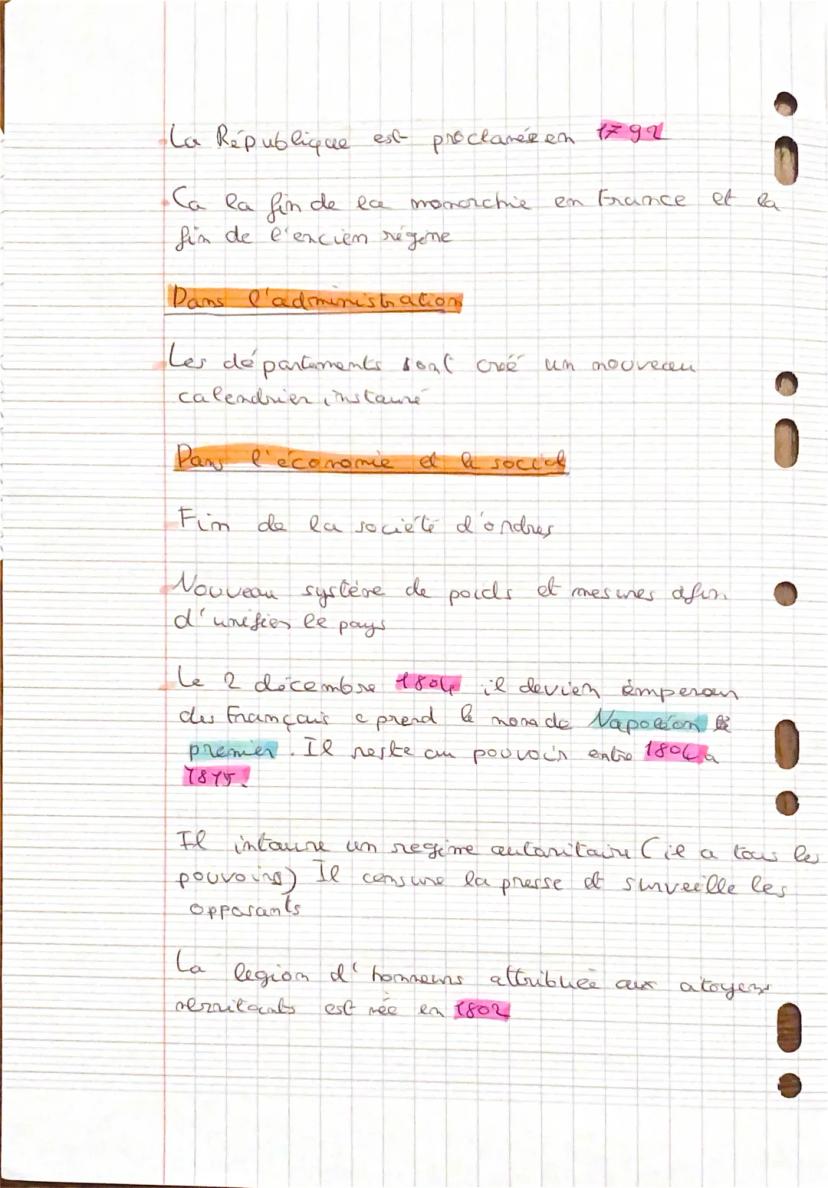 La République est proclamée en 1792
Ca la fin de la monarchie en France et la
fin de l'encien régime
Dans l'administration
Les départements sont creé un nouveau
calendrier instauré
Dans l'économie et le social
Fin de la société d'ordres
Nouveau système de poids et mesures afin
d'unifier le pays
Le 2 décembre 1804 il devien émpereur
des Français e prend le nom de Napoléon le
premier. Il reste au pouvoir entre 1804 a
1815.
Il intaure un regime autoritaire (il a tous les
pouvoirs) Il censure la presse et surveille les
opposants
La legion d'honneurs attribuée aux citoyens
méritants est née en 1802